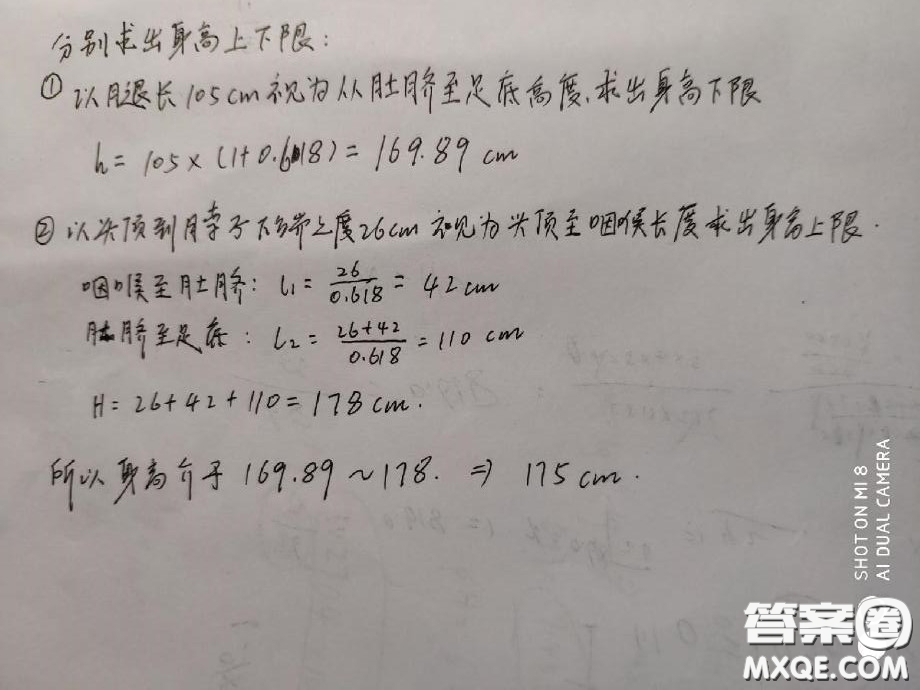 分别求出身高上下限：
① 以腿长105cm视为从肚脐至足底高度，求出身高下限
h = 105 × (1+0.618) = 169.89 cm
② 以头顶到脖子下端之度26cm视为头顶至咽喉长度求出身高上限.
咽喉至肚脐： l₁ = 26/0.618 = 42 cm
肚脐至足底： l₂ = (26+42)/0.618 = 110 cm
H = 26+42+110 = 178 cm.
所以身高介于 169.89 ~ 178. ⇒ 175 cm.
SHOT ON MI 8
AI DUAL CAMERA
答案圈
MXQE.COM